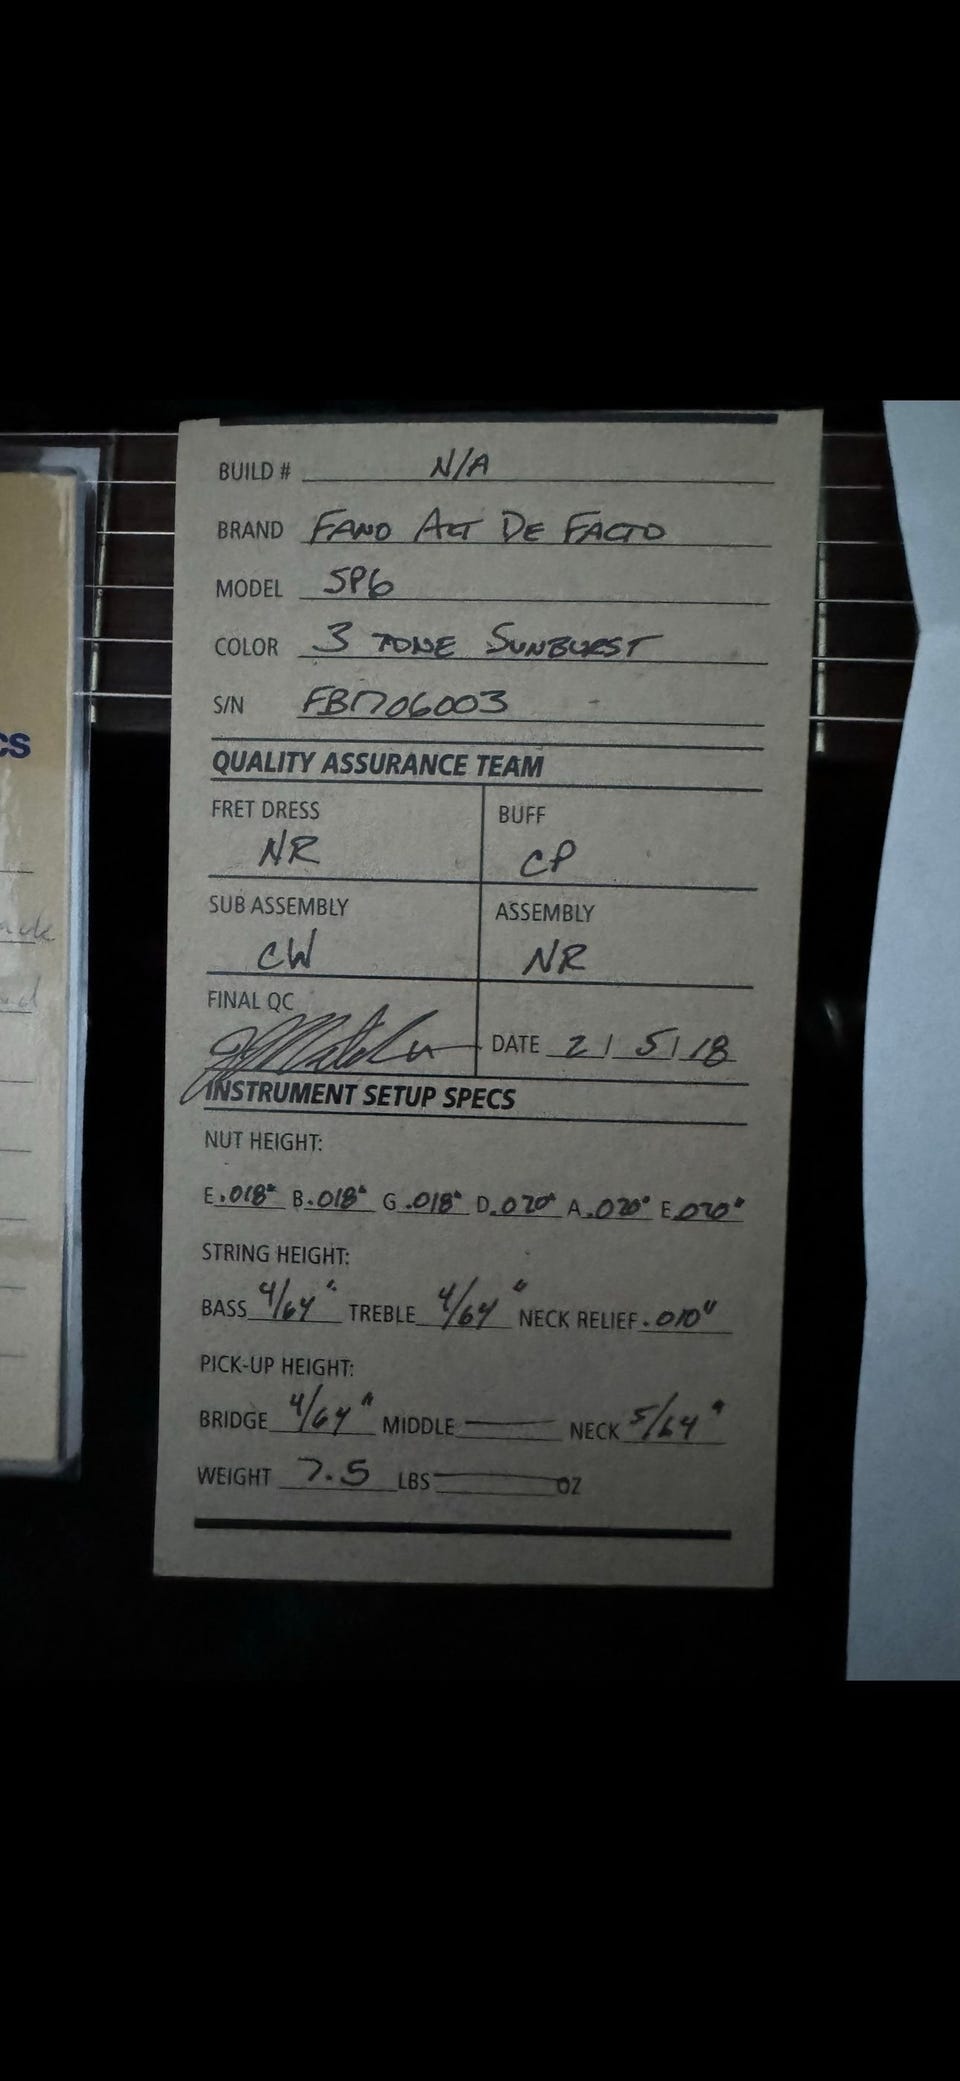 BUILD # N/A
BRAND FANO ALT DE FACTO
MODEL SP6
COLOR 3 TONE SUNBURST
S/N FB1706003
QUALITY ASSURANCE TEAM
FRET DRESS BUFF
NR CP
SUB ASSEMBLY ASSEMBLY
CW NR
FINAL QC
DATE 2/5/18
INSTRUMENT SETUP SPECS
NUT HEIGHT:
E .018" B .018" G .018" D .020" A .020" E .020"
STRING HEIGHT:
BASS 4/64" TREBLE 4/64" NECK RELIEF .010"
PICK-UP HEIGHT:
BRIDGE 4/64" MIDDLE — NECK 5/64"
WEIGHT 7.5 LBS — OZ
cs